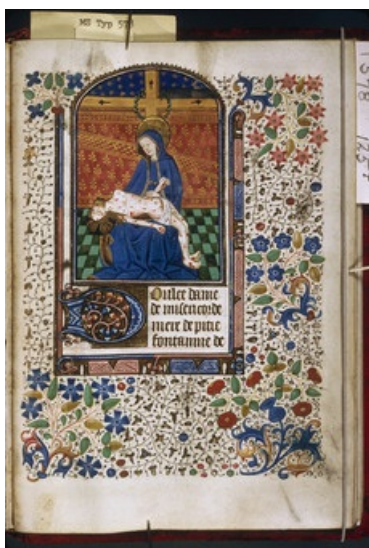 MS Typ 578
Doulce dame
de misericorde
mere de pitie
fontainne de